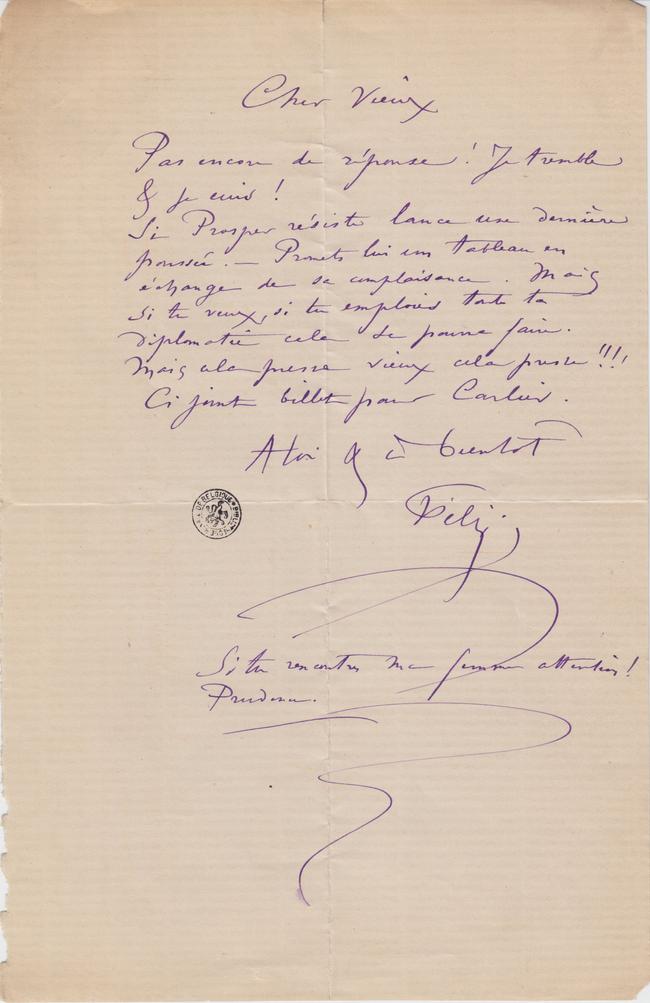 Cher Vieux
Pas encore de réponse ! Je tremble
& je suis !
Si Prosper résiste lance une dernière
poussée. — Promets lui un tableau en
échange de sa complaisance. Mais
si tu veux, si tu emploies toute ta
diplomatie cela se pourra faire.
Mais cela presse vieux cela presse !!!
Ci joint billet pour Carlier.
A toi & à bientôt
Féli
Si tu rencontres ma femme attention !
Prudence.
DE BELGIQUE